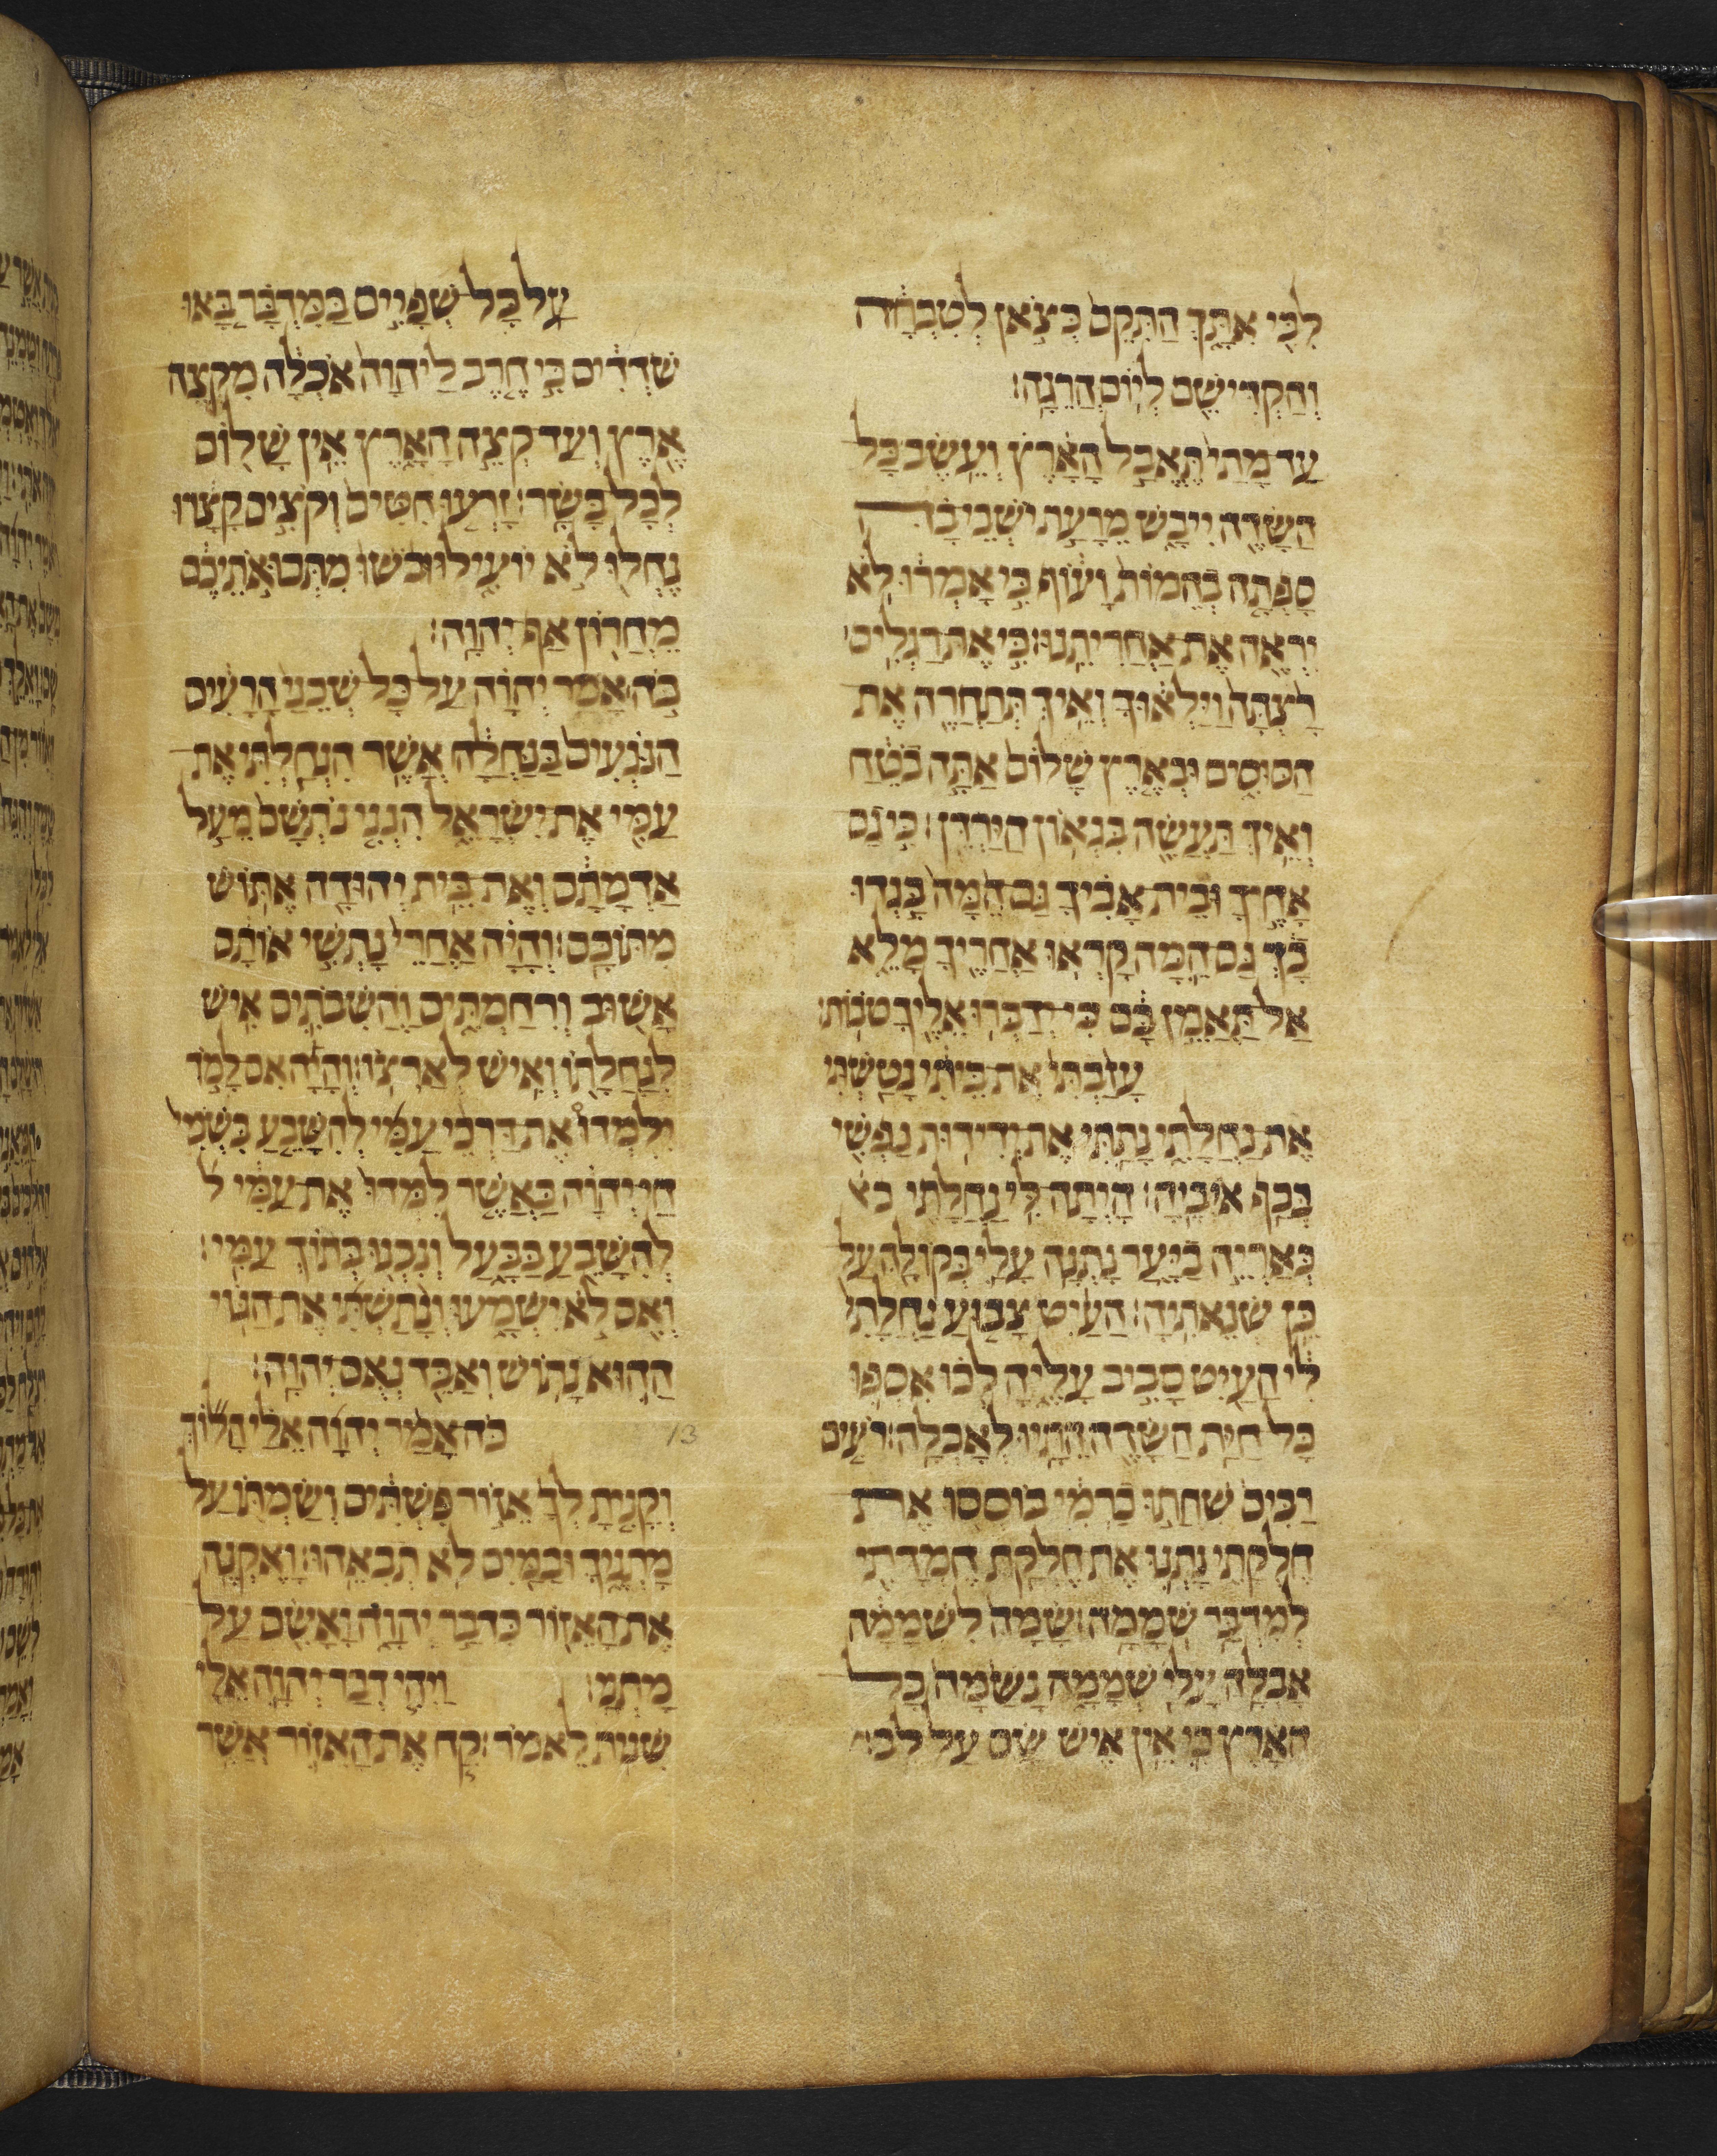 לִבִּי אִתָּךְ הַתִּקֵם כְּצֹאן לְטִבְחָה
וְהַקְדִּישֵׁם לְיוֹם הֲרֵגָה׃
עַד מָתַי תֶּאֱבַל הָאָרֶץ וְעֵשֶׂב כָּל
הַשָּׂדֶה יִיבָשׁ מֵרָעַת יֹשְׁבֵי בָהּ
סָפְתָה בְהֵמוֹת וָעוֹף כִּי אָמְרוּ לֹא
יִרְאֶה אֶת אַחֲרִיתֵנוּ׃ כִּי אֶת רַגְלִים
רַצְתָּה וַיַּלְאוּךָ וְאֵיךְ תְּתַחֲרֶה אֶת
הַסּוּסִים וּבְאֶרֶץ שָׁלוֹם אַתָּה בֹטֵחַ
וְאֵיךְ תַּעֲשֶׂה בִּגְאוֹן הַיַּרְדֵּן׃ כִּי גַם
אַחֶיךָ וּבֵית אָבִיךָ גַּם הֵמָּה בָּגְדוּ
בָךְ גַּם הֵמָּה קָרְאוּ אַחֲרֶיךָ מָלֵא
אַל תַּאֲמֵן בָּם כִּי יְדַבְּרוּ אֵלֶיךָ טֹבוֹת׃
עָזַבְתִּי אֶת בֵּיתִי נָטַשְׁתִּי
אֶת נַחֲלָתִי נָתַתִּי אֶת יְדִידוּת נַפְשִׁי
בְּכַף אֹיְבֶיהָ׃ הָיְתָה לִּי נַחֲלָתִי כא
כְּאַרְיֵה בַיָּעַר נָתְנָה עָלַי בְּקוֹלָהּ עַל
כֵּן שְׂנֵאתִיהָ׃ הַעַיִט צָבוּעַ נַחֲלָתִי
לִי הַעַיִט סָבִיב עָלֶיהָ לְכוּ אִסְפוּ
כָּל חַיַּת הַשָּׂדֶה הֵתָיוּ לְאָכְלָה׃ רֹעִים
רַבִּים שִׁחֲתוּ כַרְמִי בּוֹסְסוּ אֶת
חֶלְקָתִי נָתְנוּ אֶת חֶלְקַת חֶמְדָּתִי
לְמִדְבַּר שְׁמָמָה׃ שָׂמָהּ לִשְׁמָמָה
אָבְלָה עָלַי שְׁמֵמָה נָשַׁמָּה כָּל
הָאָרֶץ כִּי אֵין אִישׁ שָׂם עַל לֵב׃
עַל כָּל שְׁפָיִים בַּמִּדְבָּר בָּאוּ
שֹׁדְדִים כִּי חֶרֶב לַיהוָה אֹכְלָה מִקְצֵה
אֶרֶץ וְעַד קְצֵה הָאָרֶץ אֵין שָׁלוֹם
לְכָל בָּשָׂר׃ זָרְעוּ חִטִּים וְקֹצִים קָצָרוּ
נֶחְלוּ לֹא יוֹעִילוּ וּבֹשׁוּ מִתְּבוּאֹתֵיכֶם
מֵחֲרוֹן אַף יְהוָה׃
כֹּה אָמַר יְהוָה עַל כָּל שְׁכֵנַי הָרָעִים
הַנֹּגְעִים בַּנַּחֲלָה אֲשֶׁר הִנְחַלְתִּי אֶת
עַמִּי אֶת יִשְׂרָאֵל הִנְנִי נֹתְשָׁם מֵעַל
אַדְמָתָם וְאֶת בֵּית יְהוּדָה אֶתּוֹשׁ
מִתּוֹכָם׃ וְהָיָה אַחֲרֵי נָתְשִׁי אוֹתָם
אָשׁוּב וְרִחַמְתִּים וַהֲשִׁבֹתִים אִישׁ
לְנַחֲלָתוֹ וְאִישׁ לְאַרְצוֹ׃ וְהָיָה אִם לָמֹד
יִלְמְדוּ אֶת דַּרְכֵי עַמִּי לְהִשָּׁבֵעַ בִּשְׁמִי
חַי יְהוָה כַּאֲשֶׁר לִמְּדוּ אֶת עַמִּי ל
לְהִשָּׁבֵעַ בַּבָּעַל וְנִבְנוּ בְּתוֹךְ עַמִּי׃
וְאִם לֹא יִשְׁמָעוּ וְנָתַשְׁתִּי אֶת הַגּוֹי
הַהוּא נָתוֹשׁ וְאַבֵּד נְאֻם יְהוָה׃
13 כֹּה אָמַר יְהוָה אֵלַי הָלוֹךְ
וְקָנִיתָ לְּךָ אֵזוֹר פִּשְׁתִּים וְשַׂמְתּוֹ עַל
מָתְנֶיךָ וּבַמַּיִם לֹא תְבִאֵהוּ׃ וָאֶקְנֶה
אֶת הָאֵזוֹר כִּדְבַר יְהוָה וָאָשִׂם עַל
מָתְנָי׃ וַיְהִי דְבַר יְהוָה אֵלַי
שֵׁנִית לֵאמֹר׃ קַח אֶת הָאֵזוֹר אֲשֶׁר